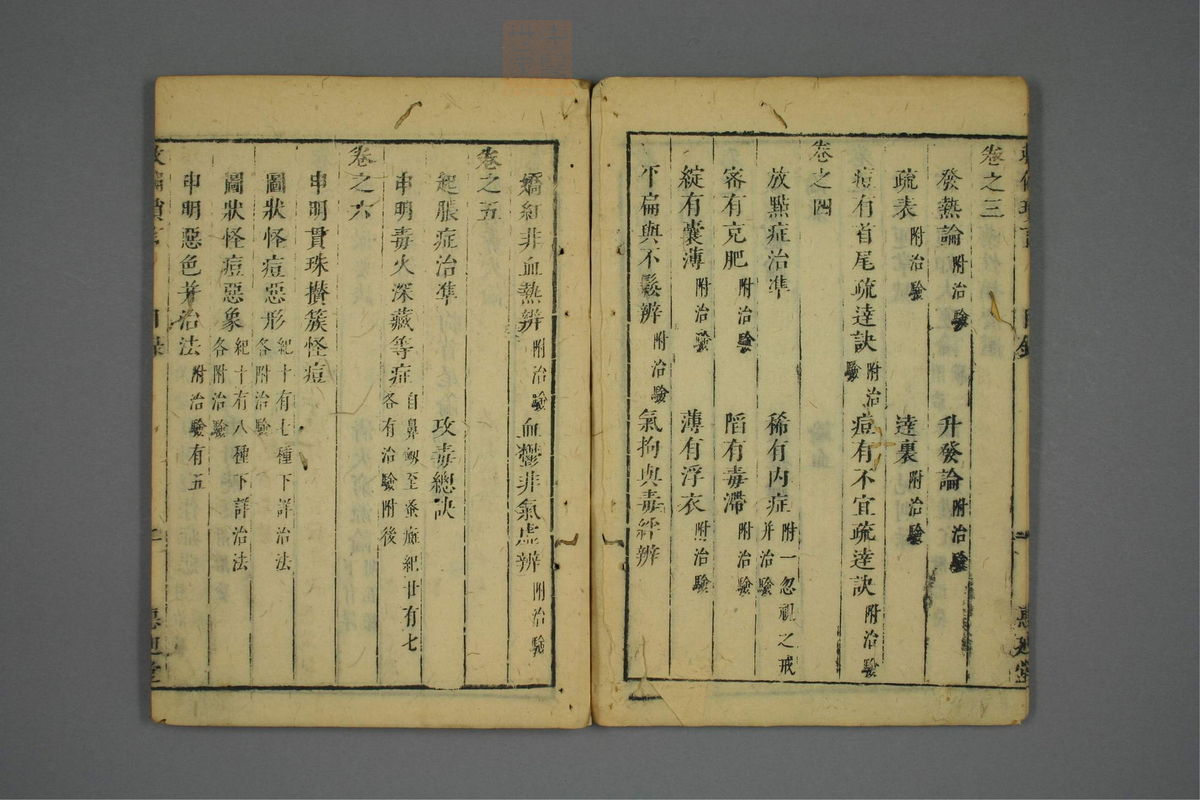 卷之三
發熱論附治驗 升發論附治驗
疏表附治驗 達裏附治驗
痘有首尾疏達訣附治驗 痘有不宜疏達訣附治驗
卷之四
放點症治準 稀有内症附一忽視之戒并治驗
密有克肥附治驗 陷有毒滯附治驗
綻有囊薄附治驗 薄有浮衣附治驗
不扁與不鬆辨附治驗 氣拘與毒絆辨
嬌紅非血熱辨附治驗 血鬱非氣虛辨附治驗
卷之五
起脹症治準 攻毒總訣
申明毒火深藏等症自鼻衂至蚤痂紀廿有七各有治驗附後
卷之六
申明貫珠攢簇怪痘
圖狀怪痘惡形紀十有七種下詳治法各附治驗
圖狀怪痘惡象紀十有八種下詳治法各附治驗
申明惡色并治法附治驗有五